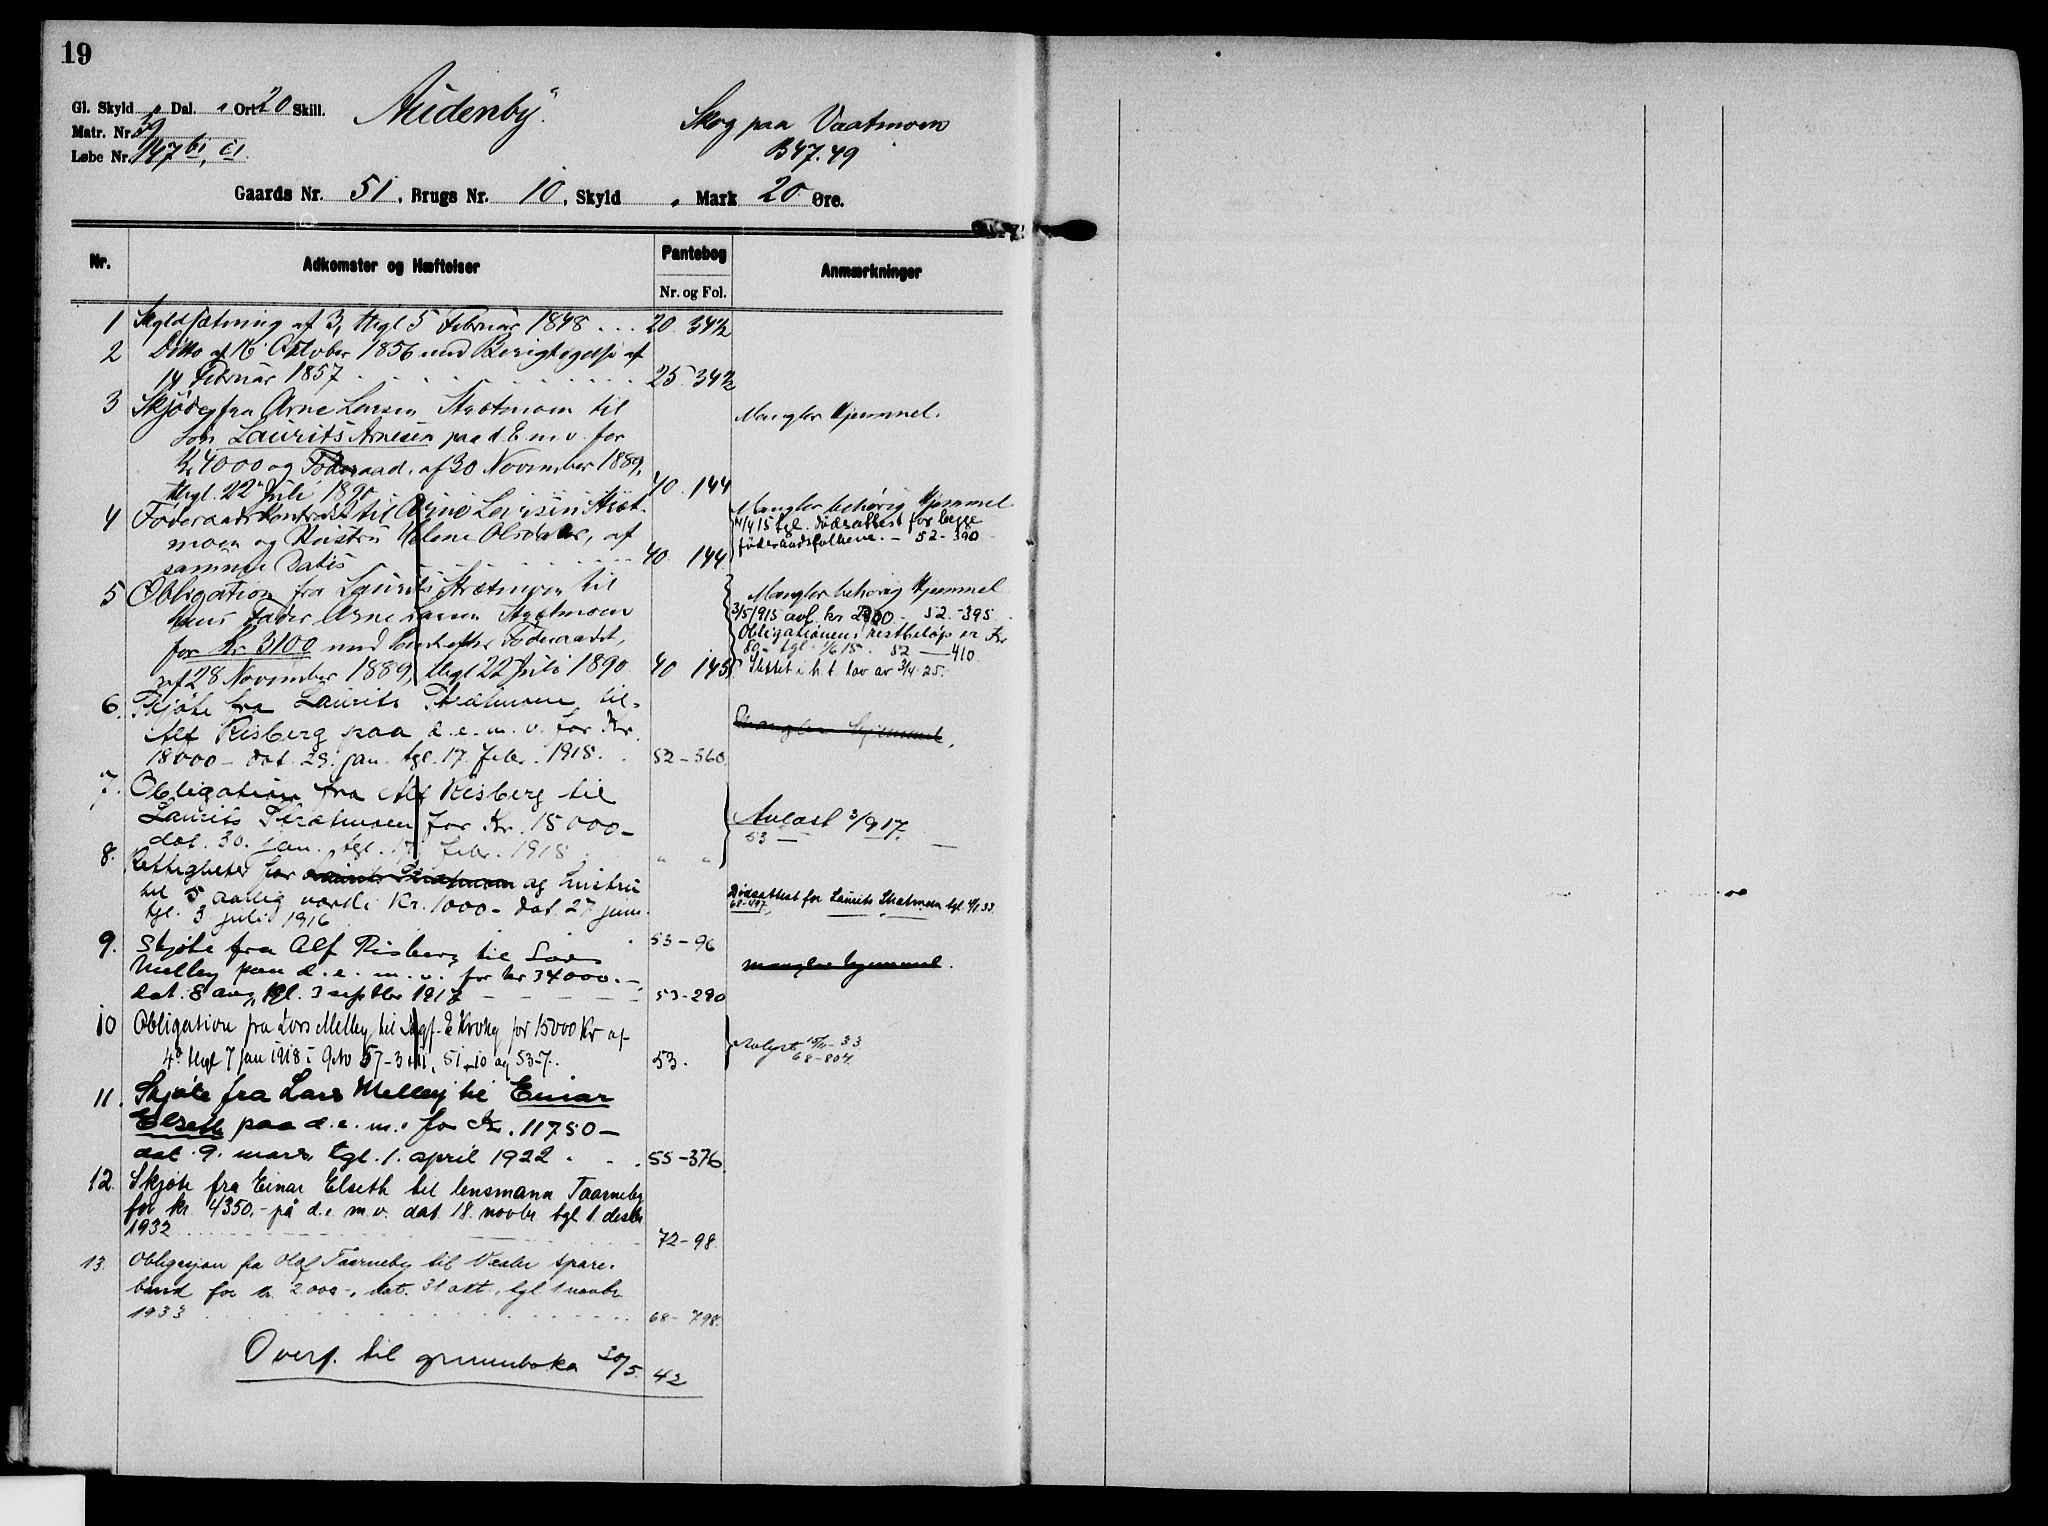 19
Gl. Skyld " Dal. " Ort 20 Skill.
Matr. Nr. 59
Løbe Nr. 147 b1, c1.
"Audenby".
Skog paa Vaatmoen
B 47. 49
Gaards Nr. 51, Brugs Nr. 10, Skyld " Mark 20 Øre.
Nr.
Adkomster og Hæftelser
Pantebog
Nr. og Fol.
Anmærkninger
1 Skyldsætning af 3, thgl 5 Februar 1848 . . . 20. 34½
2 Ditto af 16 Oktober 1856 med Berigtigelse af
14 Februar 1857 . . . 25. 34½
3 Skjøde fra Arne Larsen Strætmoen til Mangler Hjemmel.
Søn Laurits Arnesen paa d. E. m. v. for
Kr 4000 og Føderaad, af 30 November 1889,
thgl. 22 Juli 1890 40. 144
4 Føderaadskontrakt til Arne Larsen Stræt- Mangler behørig Hjemmel
moen og Hustru Helene Olsdatter, af 14/4 15 tgl. dødsattest for begge
føderaadsfolkene. – 52-390
samme Datis 40. 144
5 Obligation fra Laurits Strætmoen til Mangler behørig Hjemmel
hans Fader Arne Larsen Strætmoen 3/5 1915 avl. kr – 52-395.
for Kr 3100 med Renter Føderaadet, Obligationens restbeløp er Kr
80 – tgl. 1/6 15. 52 – 410.
af 28 November 1889, thgl 22 Juli 1890. 40 145 Slettet i h. t. lov av 3/4-25.
6. Skjøte fra Laurits Strætmoen til
Alf Risberg paa d. e. m. v. for Kr. Mangler hjemmel.
18000 – dat. 29. jan. tgl. 17. febr. 1915. 52-560
7. Obligation fra Alf Risberg til
Laurits Strætmoen for Kr. 15000 – Avlæst 3/9 17.
53 –
dat. 30. jan. tgl. 17 febr. 1915 " "
8. Rettigheter for Laurits Strætmoen og hustru
til 5 aarlig værdi Kr. 1000 – dat. 27 juni Dødsattest for Laurits Strætmoen tgl. 33.
68-497,
tgl. 3 juli 1916 53-96
9. Skjøte fra Alf Risberg til Lars
Melleby paa d. e. m. v. for kr 34000. – mangler hjemmel.
dat. 8 aug, tgl. 3 septbr 1917 53-290
10 Obligation fra Lars Melleby til Sagf. E Krohg for 15000 Kr af Avlyst 15/11-33
68-804.
4d thgl 7 jan 1918 i Gno 57-3+11, 51-10 og 53-7. 53.
11. Skjøte fra Lars Melleby til Einar
Elseth paa d. e. m. v for Kr. 11750 –
dat. 9. mars tgl. 1. april 1922 . . . 55-376.
12. Skjøte fra Einar Elseth til lensmann Taarneby
for kr 4350.- på d. e. m. v. dat. 18. novbr tgl 1. desbr
1932 72-98.
13. Obligasjon fra Olaf Taarneby til Vaaler spare-
bank for kr. 2000-, dat. 31 okt, tgl 1 novbr
1933 68-798.
Overf. til grunnboka 30/5. 42